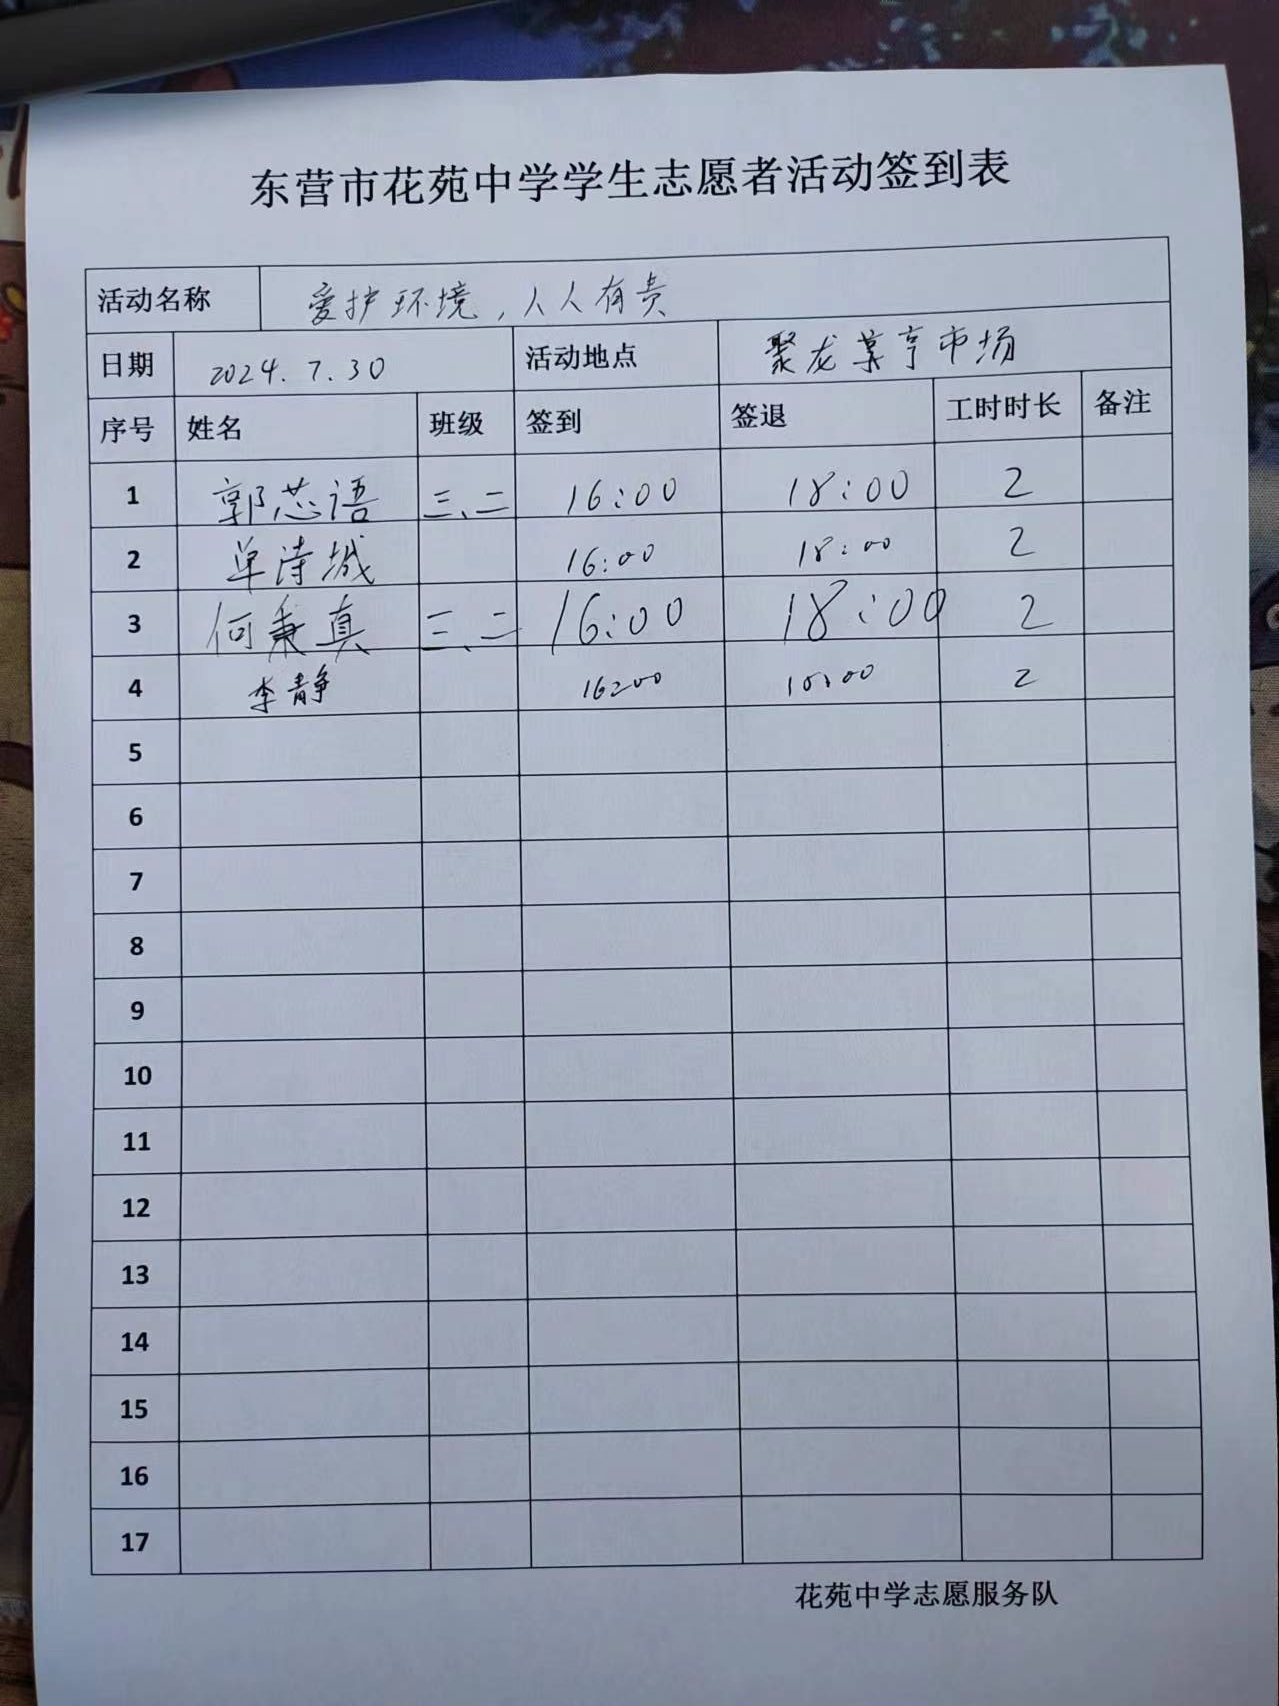 东营市花苑中学学生志愿者活动签到表
活动名称 爱护环境,人人有责
日期 2024.7.30 活动地点 聚龙某亨市场
序号 姓名 班级 签到 签退 工时时长 备注
1 郭芯语 三、二 16:00 18:00 2
2 单诗城 16:00 18:00 2
3 何秉真 三、二 16:00 18:00 2
4 李静 16:00 18:00 2
5
6
7
8
9
10
11
12
13
14
15
16
17
花苑中学志愿服务队